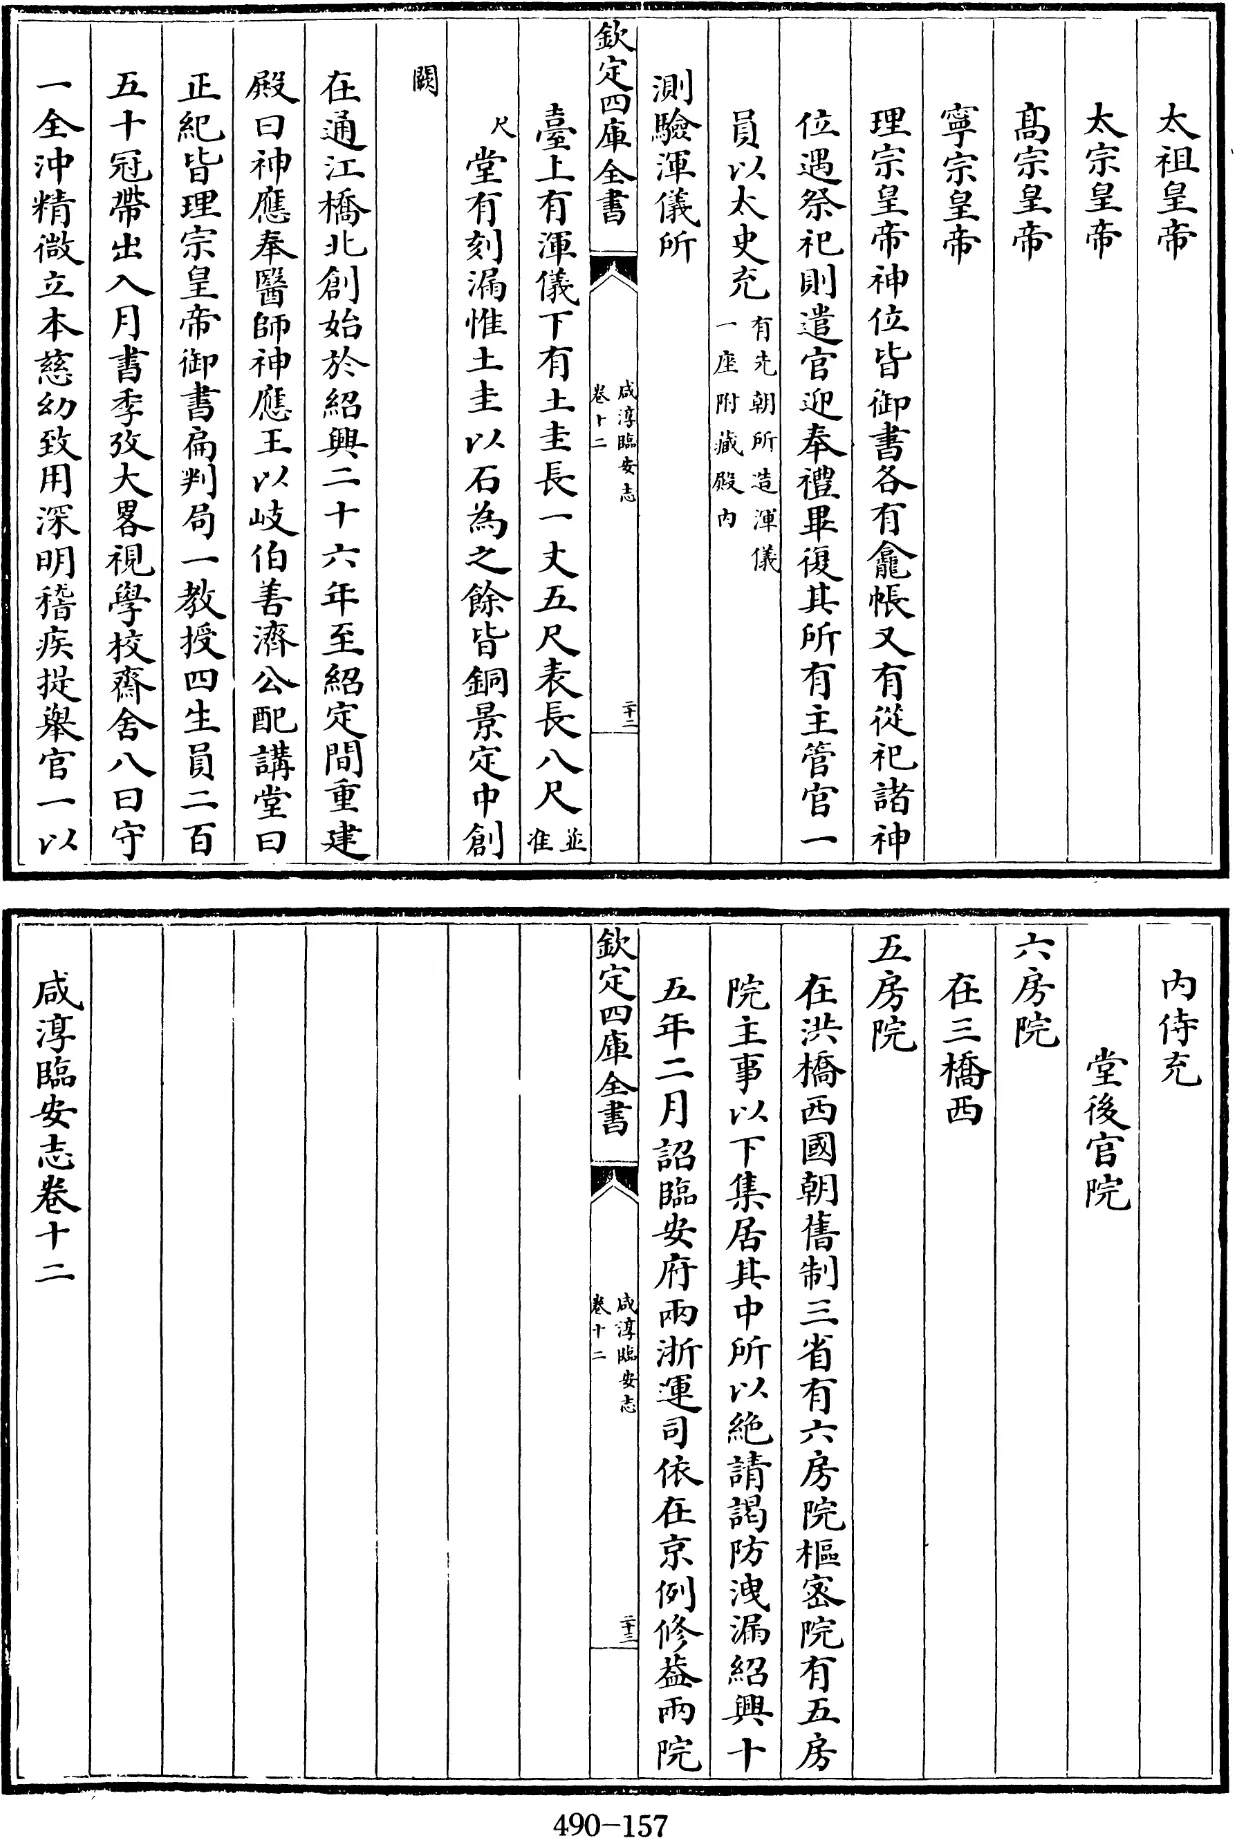 太祖皇帝
太宗皇帝
髙宗皇帝
寧宗皇帝
理宗皇帝神位皆御書各有龕帳又有從祀諸神
位遇祭祀則遣官迎奉禮畢復其所有主管官一
員以太史充有先朝所造渾儀
一座附藏殿内
測驗渾儀所
欽定四庫全書
咸淳臨安志
卷十二
二十二
臺上有渾儀下有土圭長一丈五尺表長八尺並
准
尺堂有刻漏惟土圭以石為之餘皆銅景定中創
闕
在通江橋北創始於紹興二十六年至紹定間重建
殿曰神應奉醫師神應王以岐伯善濟公配講堂曰
正紀皆理宗皇帝御書扁判局一教授四生員二百
五十冠帶出入月書季攷大畧視學校齋舍八曰守
一全沖精微立本慈幼致用深明稽疾提舉官一以
内侍充
堂後官院
六房院
在三橋西
五房院
在洪橋西國朝舊制三省有六房院樞密院有五房
院主事以下集居其中所以絶請謁防洩漏紹興十
五年二月詔臨安府兩浙運司依在京例修葢兩院
欽定四庫全書
咸淳臨安志
卷十二
二十三
咸淳臨安志卷十二
490-157